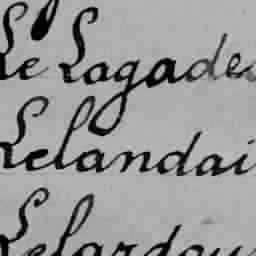 Le Lagade
Lelandai
Lelardou